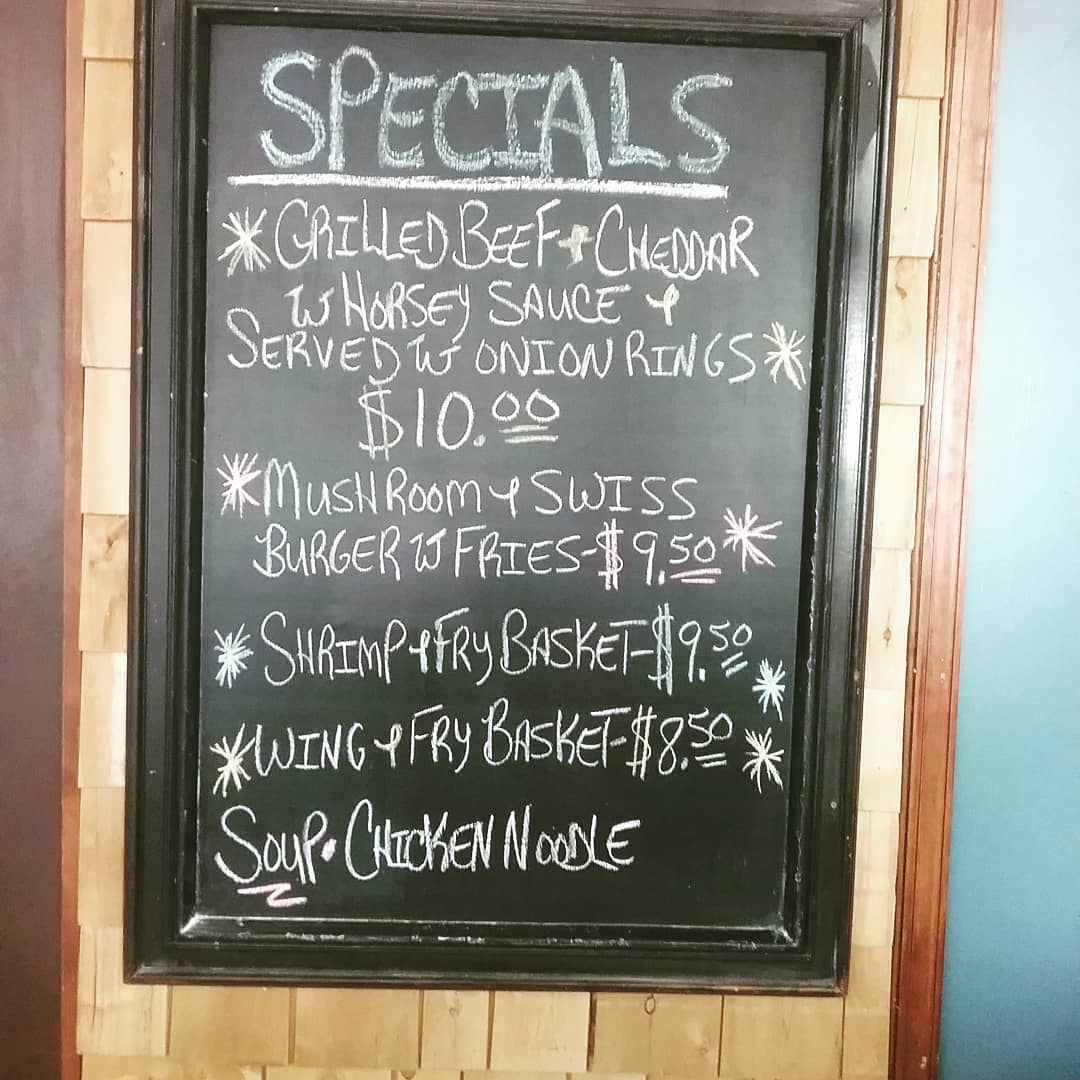 SPECIALS
* GRILLED BEEF + CHEDDAR
W HORSEY SAUCE +
SERVED W ONION RINGS *
$10.00
* MUSHROOM + SWISS
BURGER W FRIES-$9.50 *
* SHRIMP + FRY BASKET-$9.50 *
* WING + FRY BASKET-$8.50 *
SOUP • CHICKEN NOODLE